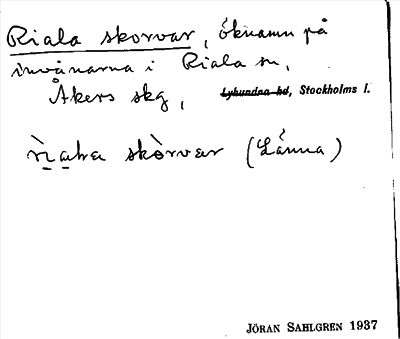 Riala skorvar, öknamn på
invånarna i Riala sn,
Åkers skg, Lyhundra hd, Stockholms l.
skòrvar (Länna)
JÖRAN SAHLGREN 1937